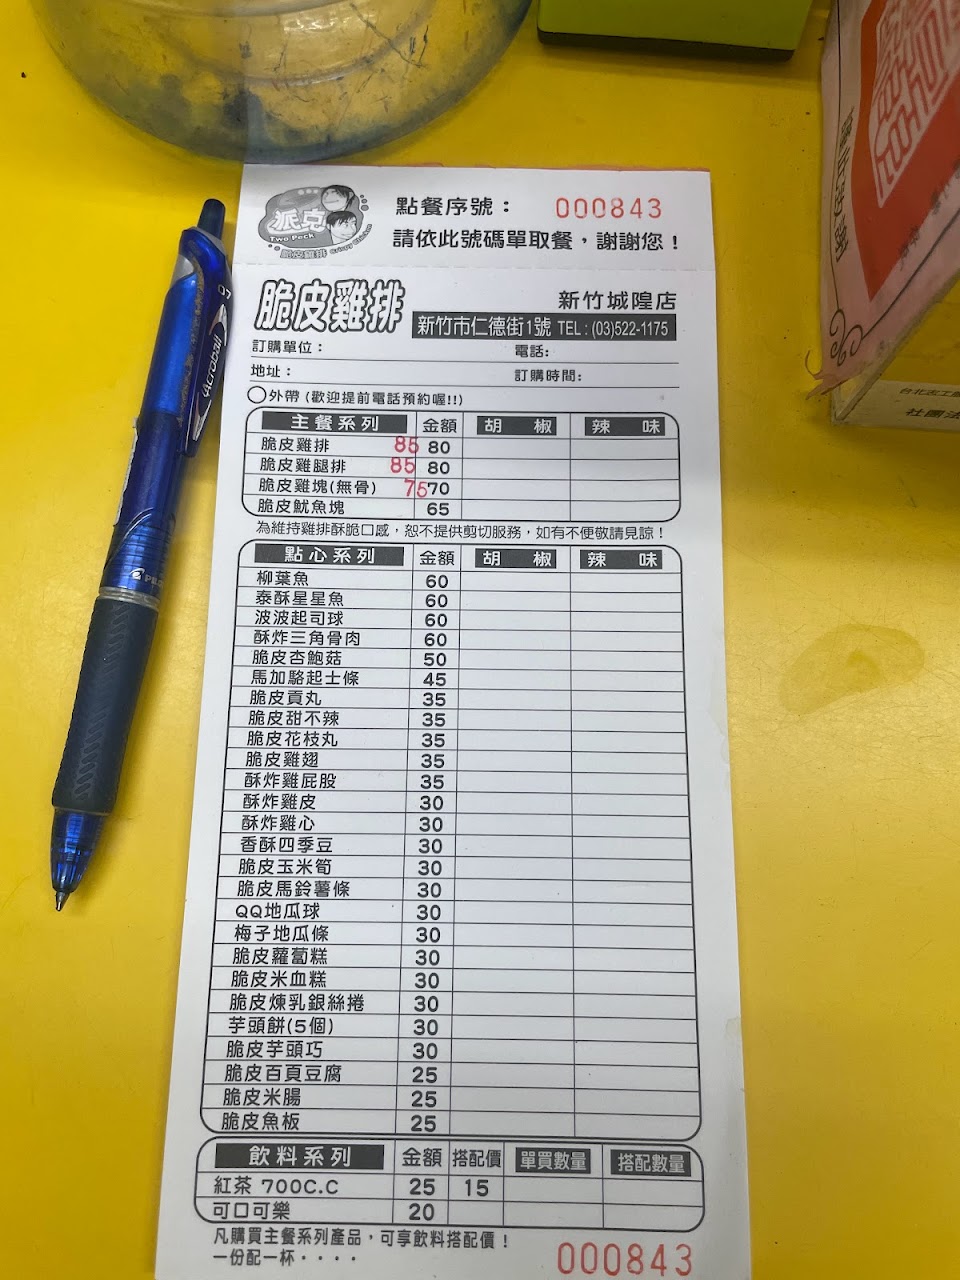 派克
Two Peck
脆皮雞排 Crispy Chicken
點餐序號： 000843
請依此號碼單取餐，謝謝您！
脆皮雞排 新竹城隍店
新竹市仁德街1號 TEL：(03)522-1175
訂購單位： 電話:
地址： 訂購時間:
外帶 (歡迎提前電話預約喔!!)
主餐系列 金額 胡椒 辣味
脆皮雞排 85 80
脆皮雞腿排 85 80
脆皮雞塊(無骨) 75 70
脆皮魷魚塊 65
為維持雞排酥脆口感，恕不提供剪切服務，如有不便敬請見諒！
點心系列 金額 胡椒 辣味
柳葉魚 60
泰酥星星魚 60
波波起司球 60
酥炸三角骨肉 60
脆皮杏鮑菇 50
馬加駱起士條 45
脆皮貢丸 35
脆皮甜不辣 35
脆皮花枝丸 35
脆皮雞翅 35
酥炸雞屁股 35
酥炸雞皮 30
酥炸雞心 30
香酥四季豆 30
脆皮玉米筍 30
脆皮馬鈴薯條 30
QQ地瓜球 30
梅子地瓜條 30
脆皮蘿蔔糕 30
脆皮米血糕 30
脆皮煉乳銀絲捲 30
芋頭餅(5個) 30
脆皮芋頭巧 30
脆皮百頁豆腐 25
脆皮米腸 25
脆皮魚板 25
飲料系列 金額 搭配價 單買數量 搭配數量
紅茶 700C.C 25 15
可口可樂 20
凡購買主餐系列產品，可享飲料搭配價！
一份配一杯‧‧‧‧
000843
Acroball
PILO
社團法